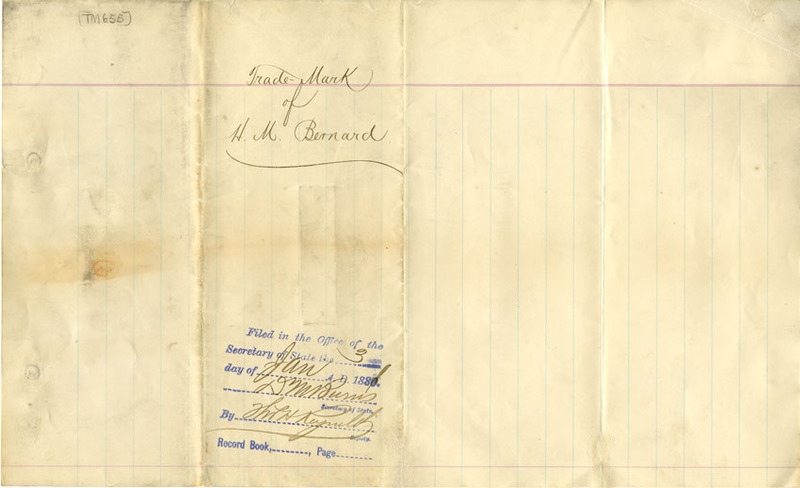 (TM655)
Trade-Mark
of
H. M. Bernard
Filed in the Office of the
Secretary of State the 3
day of Jan A. D. 1881.
D M Burns
Secretary of State.
By Thos H Reynolds
Deputy.
Record Book, Page